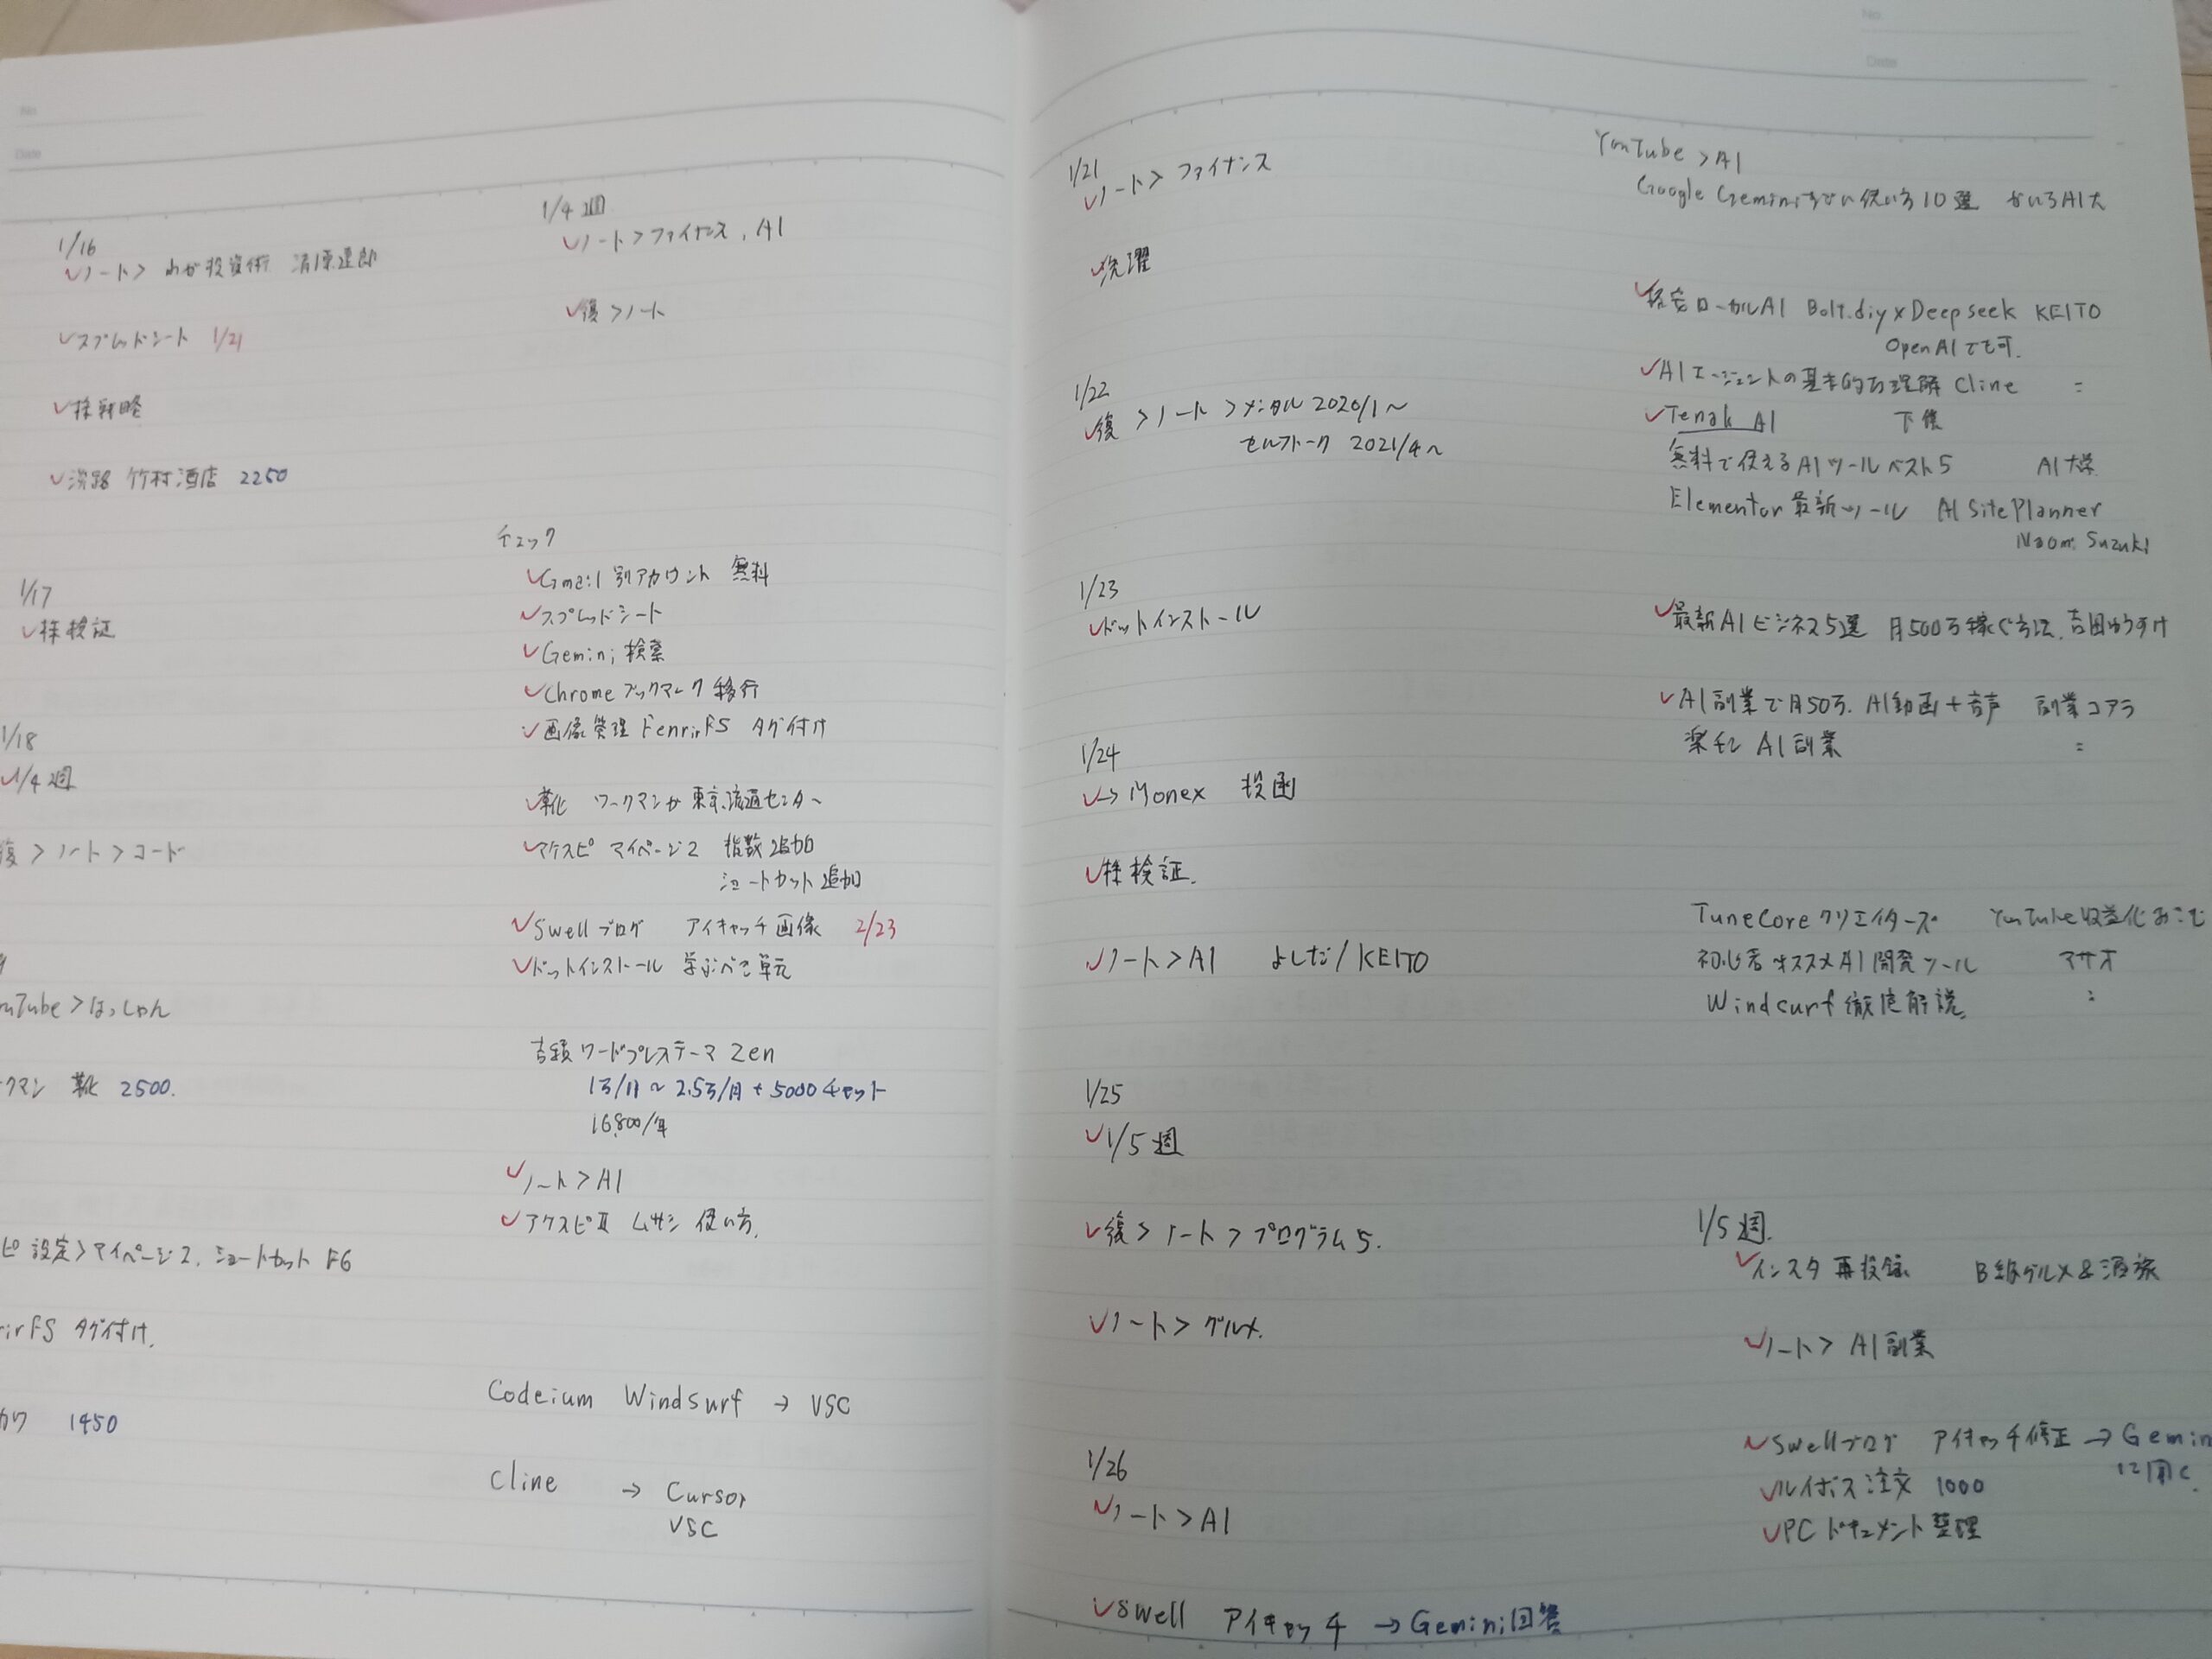 No.
Date
1/16
✓ノート> わが投資術 清原達郎
✓スプレッドシート 1/21
✓株戦略
✓淡路 竹村酒店 2250
1/17
✓株検証
1/18
✓1/4週
復 > ノート > コード
uTube > はっしゃん
クマン 靴 2500.
ピ 設定>マイページ2. ショートカット F6
rirFS タグ付け.
カワ 1450
1/4週
✓ノート>ファイナンス, AI
✓復>ノート
チェック
✓Gmail 別アカウント 無料
✓スプレッドシート
✓Gemini 検索
✓Chromeブックマーク移行
✓画像管理 FenrirFS タグ付け
✓靴 ワークマンか東京流通センター
✓アケスピ マイページ2 指数追加
ショートカット追加
✓Swellブログ アイキャッチ画像 2/23
✓ドットインストール 学ぶべき単元
ワードプレステーマ Zen
1万/月 ~ 2.5万/月 + 5000チャット
16,800/年
✓ノート>AI
✓アケスピⅡ ムサシ 使い方.
Codeium Windsurf → VSC
Cline → Cursor
VSC
No.
Date
1/21
✓ノート> ファイナンス
✓洗濯
1/22
✓復 > ノート > メンタル 2020/1~
セルフトーク 2021/4~
1/23
✓ドットインストール
1/24
✓→ Monex 投函
✓株検証.
✓ノート>AI よしだ/KEITO
1/25
✓1/5週
✓復> ノート> プログラム5.
✓ノート> グルメ.
1/26
✓ノート>AI
✓Swell アイキャッチ → Gemini回答
YouTube >AI
Google Geminiすごい使い方10選 AI大
ローカルAI Bolt.diy×Deepseek KEITO
OpenAIでも可.
✓AIエージェントの基本的な理解 Cline =
✓Tenak AI
無料で使えるAIツールベスト5 AI大学
Elementor最新ツール AI SitePlanner
Naomi Suzuki
✓最新AIビジネス5選 月500万稼ぐ方法. 吉田ゆうすけ
✓AI副業で月50万. AI動画+音声 副業コアラ
楽チン AI副業 =
TuneCoreクリエイターズ YouTube収益化
初心者オススメAI開発ツール マサオ
Windsurf徹底解説. =
1/5週.
✓インスタ再投稿 B級グルメ&酒旅
✓ノート> AI副業
✓Swellブログ アイキャッチ修正 → Gemin
に聞く.
✓ルイボス注文 1000
✓PCドキュメント整理